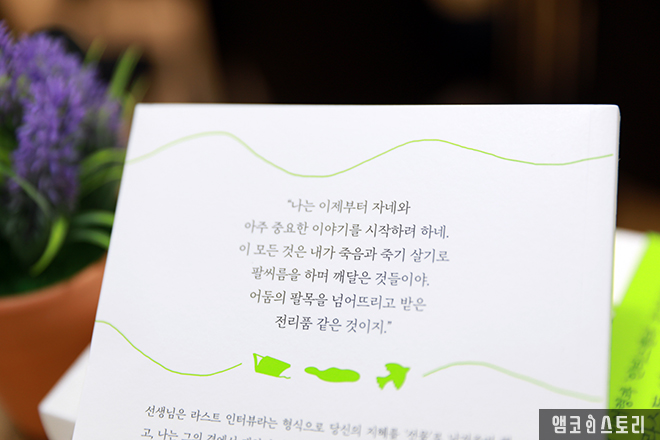 “나는 이제부터 자네와
아주 중요한 이야기를 시작하려 하네.
이 모든 것은 내가 죽음과 죽기 살기로
팔씨름을 하며 깨달은 것들이야.
어둠의 팔목을 넘어뜨리고 받은
전리품 같은 것이지.”
선생님은 라스트 인터뷰라는 형식으로 당신의 지혜를 ‘선물’로
고, 나는 그의 곁에서
앰코인스토리